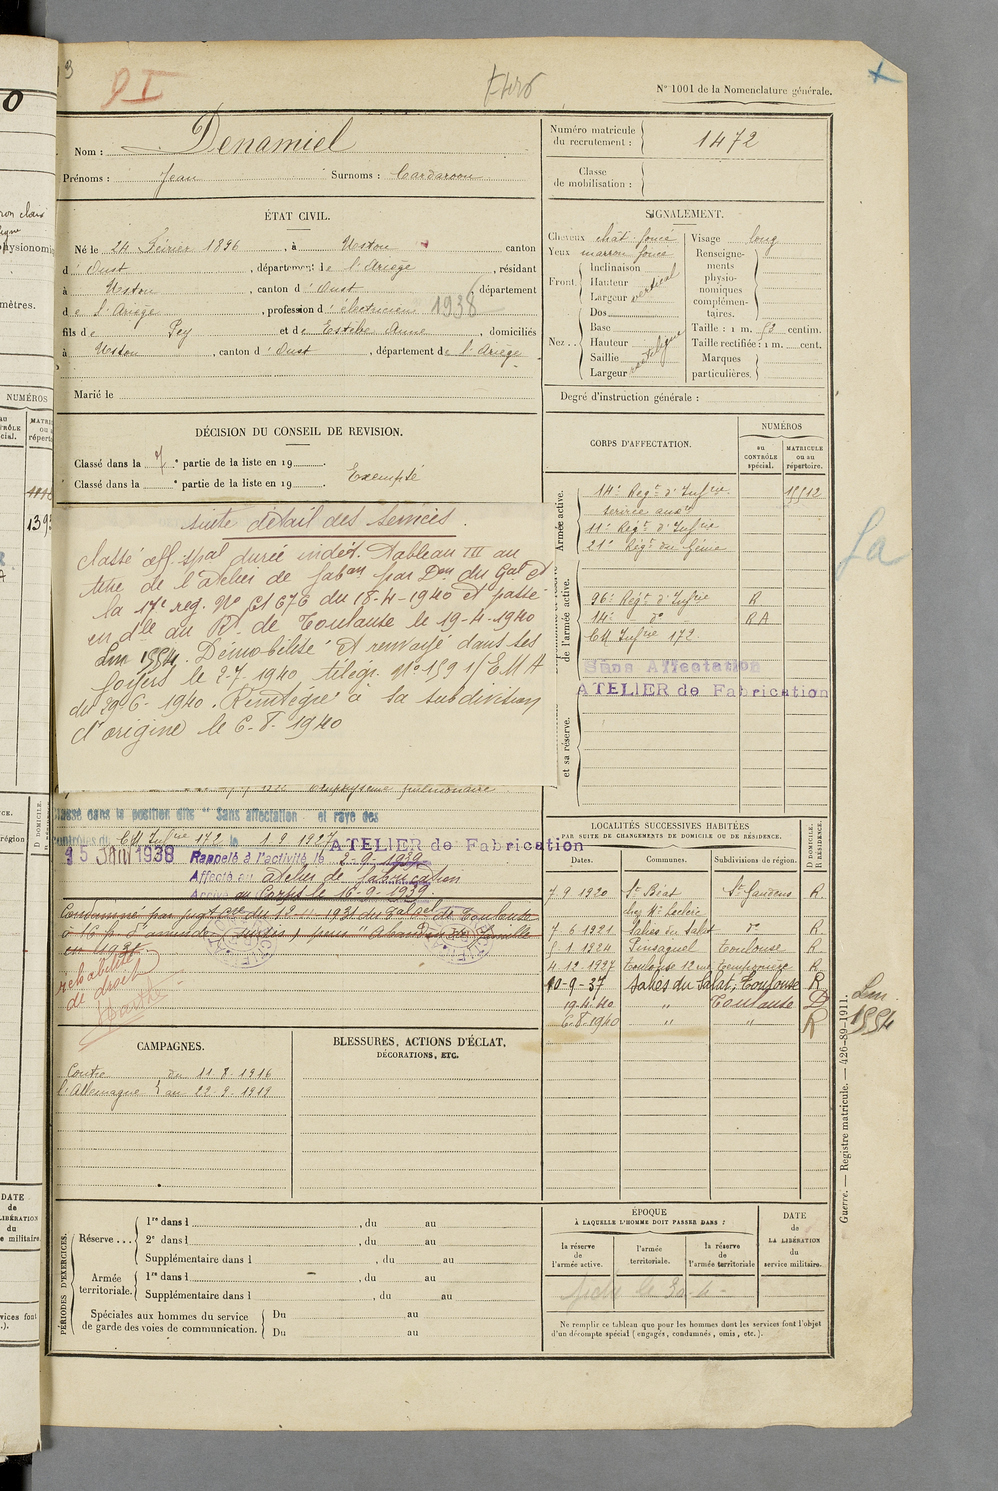 3
D I
N° 1001 de la Nomenclature générale.
Nom : Denamiel
Prénoms : Jean Surnoms : Cardaroou
Numéro matricule du recrutement : 1472
Classe de mobilisation :
ÉTAT CIVIL.
Né le 24 Février 1896, à Ustou canton
d'Oust, département de l'Ariège, résidant
à Ustou, canton d'Oust, département
de l'Ariège, profession d'électricien 1938
fils de Pey et de Estèbe Anne, domiciliés
à Ustou, canton d'Oust, département de l'Ariège
Marié le
SIGNALEMENT.
Cheveux chât. foncé Visage long
Yeux marron foncé
Front Inclinaison Hauteur Largeur vertical
Nez Dos Base Hauteur Saillie Largeur rectiligne
Renseignements physionomiques complémentaires.
Taille : 1 m. 52 centim.
Taille rectifiée : 1 m. cent.
Marques particulières.
Degré d'instruction générale :
DÉCISION DU CONSEIL DE REVISION.
Classé dans la partie de la liste en 19 .
Classé dans la ° partie de la liste en 19 .
Exempté
CORPS D'AFFECTATION.
NUMÉROS
au CONTRÔLE spécial.
MATRICULE ou au répertoire.
Armée active.
14e Régt d'Infrie 15512
service auxre
11e Régt d'Infrie
21e Régt du Génie
de l'armée active.
96e Régt d'Infrie R
14e do RA
CM Infrie 172
Sans Affectation
ATELIER de Fabrication
et sa réserve.
suite détail des services.
Classé aff. spal durée indét. Tableau III au
titre de l'atelier de fabon par Don du Gal Ct
la 17e rég. No C1 676 du 18-4-1940 et passé
en dlle du Rt de Toulouse le 19-4-1940
Lm 1554. Démobilisé et renvoyé dans ses
foyers le 2-7-1940 télégr. No 1591/EMA
du 29-6-1940. Réintégré à sa subdivision
d'origine le 6-8-1940
emphysème pulmonaire
Classé dans la position dite "Sans affectation" et rayé des
contrôles du CM Infrie 172 le 1.9.1927
ATELIER de Fabrication
5 JANV 1938
Rappelé à l'activité le 2-9-1939
Affecté au atelier de fabrication
Arrivé au Corps le 16-9-1939.
Condamné par jugt du 12-11-1931 du Tal de Toulouse
à 16 f. d'amende (sursis) pour "Abandon de famille"
en 1931
réhabilité
de droit
LOCALITÉS SUCCESSIVES HABITÉES
PAR SUITE DE CHANGEMENTS DE DOMICILE OU DE RÉSIDENCE.
Dates. Communes. Subdivisions de région. D DOMICILE. R RÉSIDENCE.
7.9.1920 St Béat St Gaudens R.
chez Mr Leclerc
7-6-1921 Salies du Salat do R
5-1-1924 Pinsaguel Toulouse R
4.12.1927 Toulouse R
10-9-37 Salies du Salat, Toulouse R
19.4.40 " Toulouse D
6-8-1940 " " R
Lm
1554
CAMPAGNES.
Contre l'Allemagne du 11.8.1916
au 22.9.1919
BLESSURES, ACTIONS D'ÉCLAT,
DÉCORATIONS, ETC.
PÉRIODES D'EXERCICES.
Réserve ... 1re dans l , du au
2e dans l , du au
Supplémentaire dans l , du au
Armée territoriale. 1re dans l , du au
Supplémentaire dans l , du au
Spéciales aux hommes du service de garde des voies de communication. Du au
Du au
ÉPOQUE
À LAQUELLE L'HOMME DOIT PASSER DANS :
la réserve de l'armée active.
l'armée territoriale.
la réserve de l'armée territoriale
DATE de LA LIBÉRATION du service militaire.
Ne remplir ce tableau que pour les hommes dont les services font l'objet
d'un décompte spécial (engagés, condamnés, omis, etc.).
Guerre. — Registre matricule. — 426-89-1911.